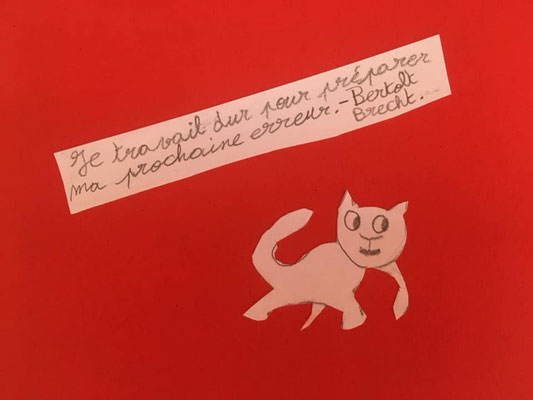 Je travail dur pour préparer
ma prochaine erreur.-Bertolt
Brecht.